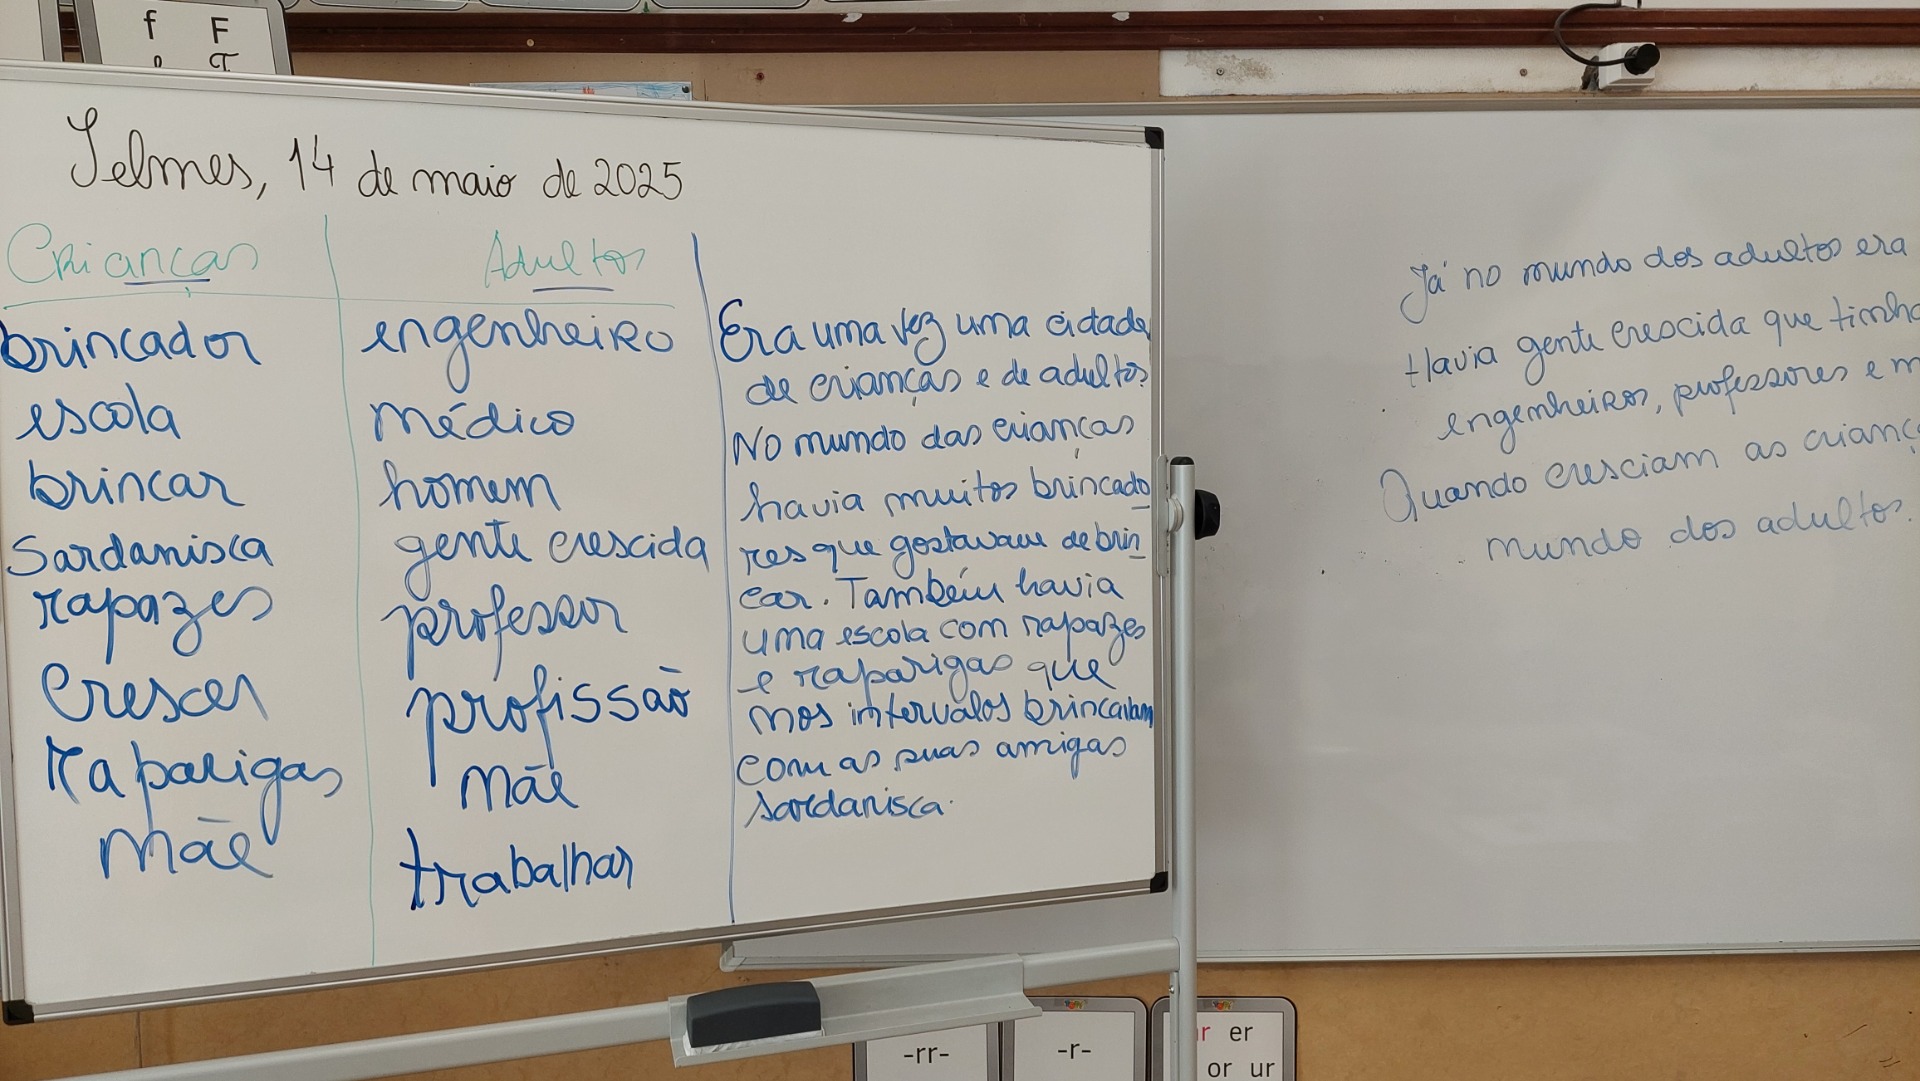 f F
Selmes, 14 de maio de 2025
Crianças
Adultos
brincador
escola
brincar
Sardanisca
rapazes
Crescer
raparigas
mãe
engenheiro
médico
homem
gente crescida
professor
profissão
mãe
trabalhar
Era uma vez uma cidade
de crianças e de adultos.
No mundo das crianças
havia muitos brincado
res que gostavam de brin
car. Também havia
uma escola com rapazes
e raparigas que
nos intervalos brincavam
com as suas amigas
sardanisca.
Já no mundo dos adultos era
Havia gente crescida que tinha
engenheiros, professores e m
Quando cresciam as crianç
mundo dos adultos.
-rr-
-r-
ar er
or ur